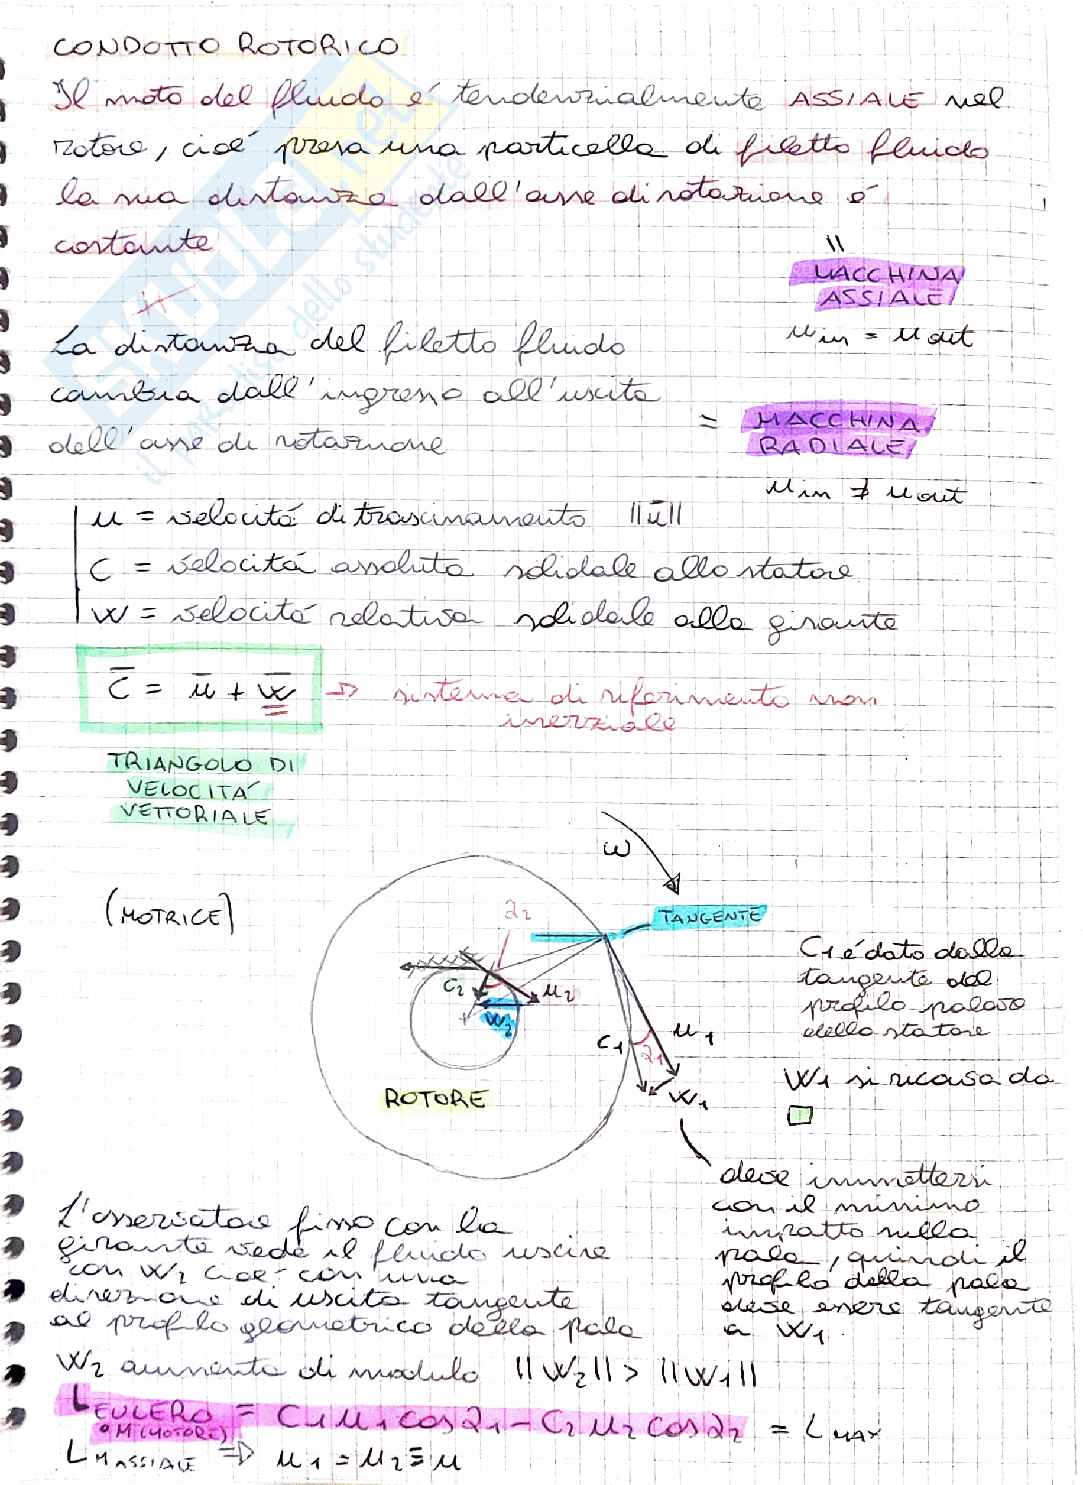 CONDOTTO ROTORICO
Il moto del fluido é tendenzialmente ASSIALE nel
rotore, cioé presa una particella di filetto fluido
la sua distanza dall'asse di rotazione é
costante
MACCHINA
ASSIALE
u in = u out
La distanza del filetto fluido
cambia dall'ingresso all'uscita
dell'asse di rotazione
= MACCHINA
RADIALE
u in ≠ u out
u = velocitá di trascinamento ||ū||
C = velocitá assoluta solidale allo statore
W = velocitá relativa solidale alla girante
C̄ = ū + w̄ → sistema di riferimento non
inerziale
TRIANGOLO DI
VELOCITÁ
VETTORIALE
ω
(MOTRICE)
TANGENTE
α2
C2
u2
W2
C1
u1
α1
W1
ROTORE
C1 é dato dalla
tangente del
profilo palare
dello statore
W1 si ricava da
deve immettersi
con il minimo
impatto sulla
pala, quindi il
profilo della pala
deve essere tangente
a W1.
L'osservatore fisso con la
girante vede il fluido uscire
con W2 cioé con una
direzione di uscita tangente
al profilo geometrico della pala
W2 aumenta di modulo ||W2|| > ||W1||
L EULERO = C1 u1 cos α1 - C2 u2 cos α2 = L MAX
M (MOTORE)
L M ASSIALE ⇒ u1 = u2 ≡ u
SKUOLA.net
il paradiso dello studente